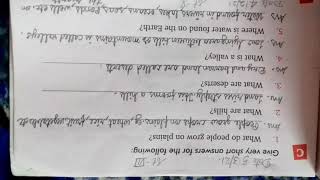 Dt - 5/3/21
C Give very short answers for the following:
1. What do people grow on plains?
Ans. People grow crops on plains eg. wheat, rice, fruit, vegetables etc
2. What are hills?
Ans. Land rises steeply then forms a hill.
3. What are deserts?
Ans. Dry and barren land are called deserts.
4. What is a valley?
Ans. Low lying area between hills or mountains is called valleys.
5. Where is water found on the Earth?
Ans. Water found in rivers, lakes, oceans, seas, ponds, wells etc.